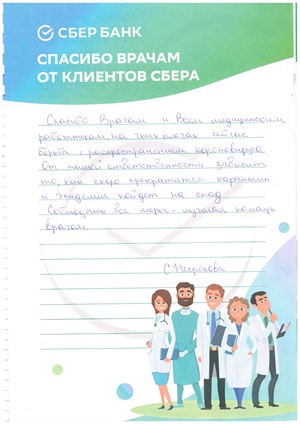 СБЕР БАНК
СПАСИБО ВРАЧАМ
ОТ КЛИЕНТОВ СБЕРА
Спасибо Врачам и Всем медицинским
работникам, на чьих плечах сейчас
борьба с распространением короновируса
От нашей ответственности зависит
то, как скоро прекратится карантин
и эпидемия пойдет на спад
Соблюдать все меры - лучшая помощь
врачам.
С.